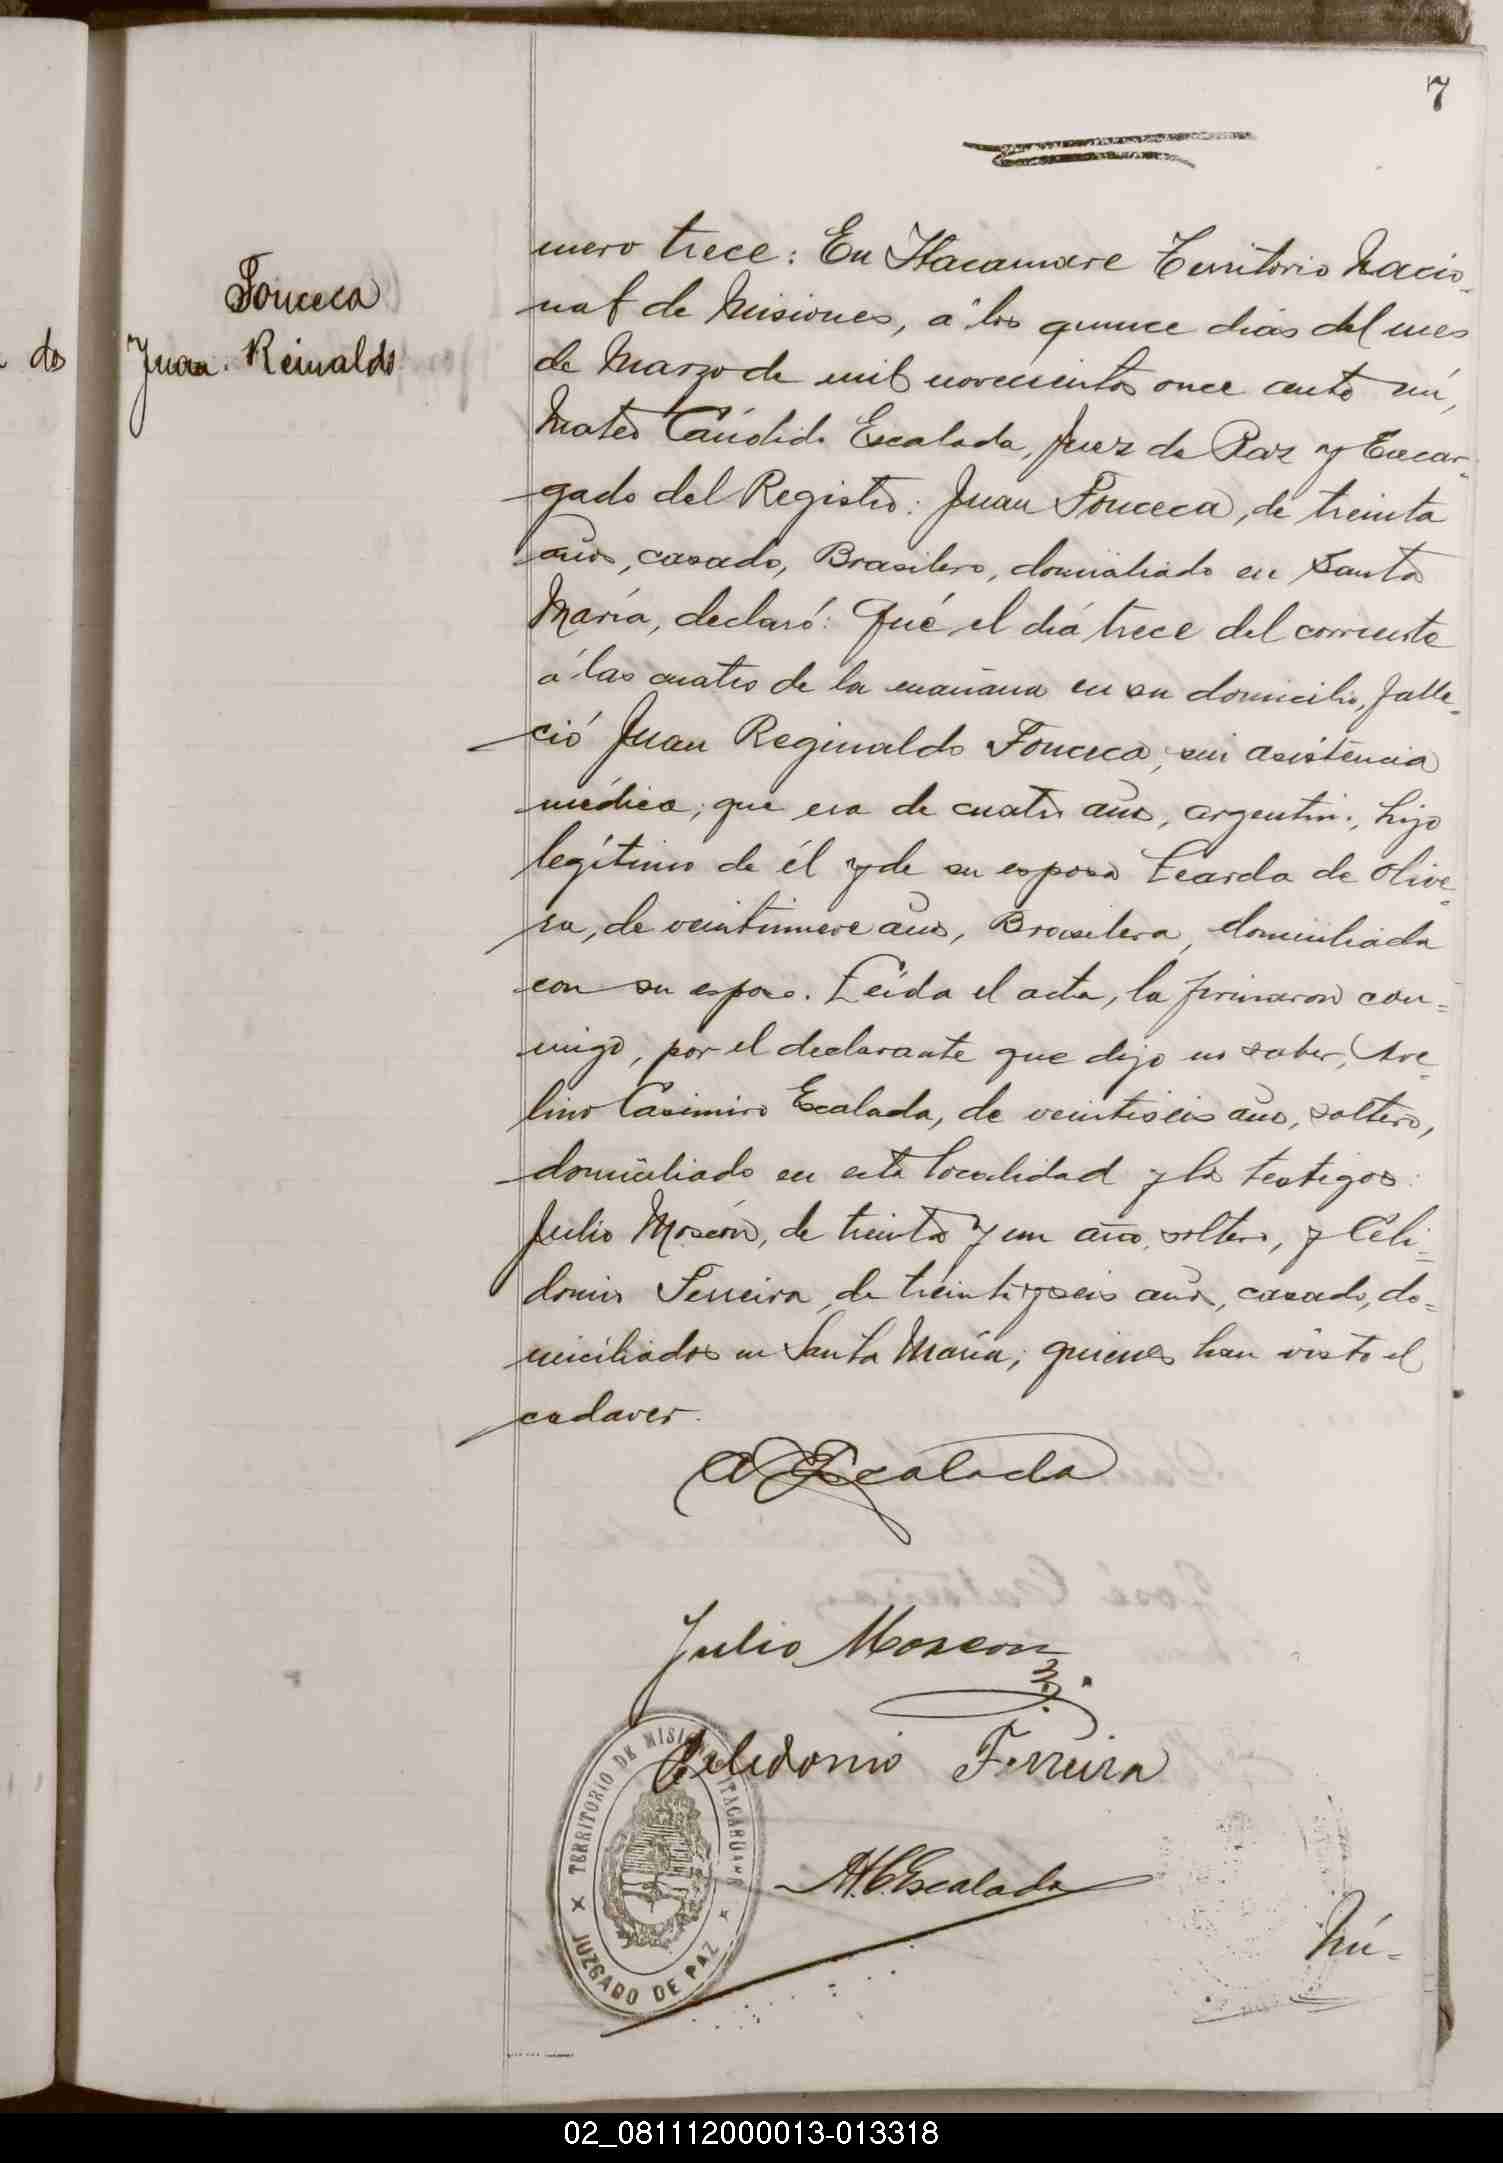 7
Fonceca
Juan Reinaldo
do
mero trece: En Itacaruare Territorio Nacio-
nal de Misiones, á los quince dias del mes
de Marzo de mil novecientos once ante mí,
Mateo Cándido Escalada, Juez de Paz y Encar-
gado del Registro: Juan Fonceca, de treinta
años, casado, Brasilero, domiciliado en Santa
María, declaró: Qué el diá trece del corriente
á las cuatro de la mañana en su domicilio, falle-
ció Juan Reginaldo Fonceca, sin asistencia
médica; que era de cuatro años, argentino, hijo
legítimo de él y de su esposa Learda de Olive-
ra, de veintinueve años, Brasilera, domiciliada
con su esposo. Leida el acta, la firmaron con-
migo, por el declarante que dijo no saber, Ave-
lino Casimiro Escalada, de veintiseis años, soltero,
domiciliado en esta localidad y los testigos:
Julio Moscón, de treinta y un años, soltero, y Celi-
donio Ferreira, de treinta y seis años, casado, do-
miciliados en Santa María; quienes han visto el
cadaver.
A Escalada
Julio Moscon
Celedonio Ferreira
M.C.Escalada
TERRITORIO DE MISIONES ITACARUARE
JUZGADO DE PAZ
Nú-
02_081112000013-013318